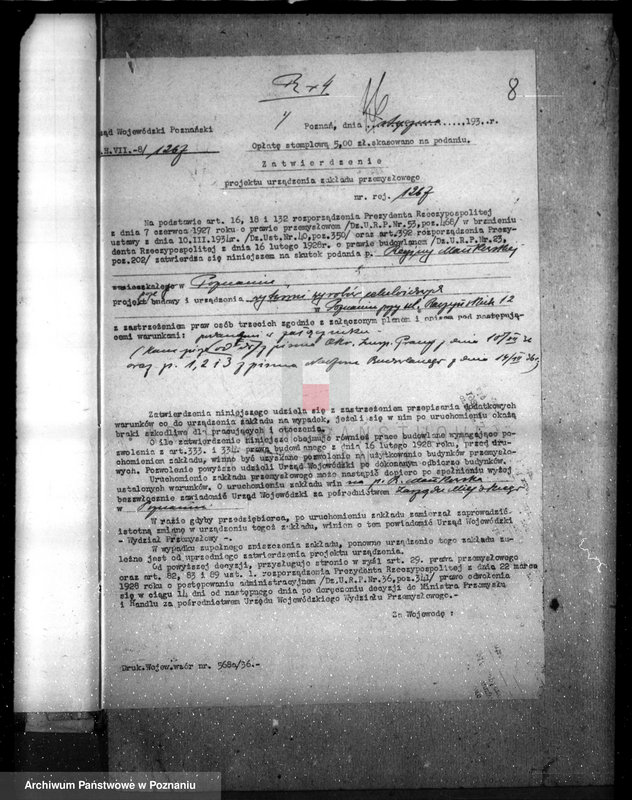 R + 4
8
4
Poznań, dnia 193..r.
rząd Wojewódzki Poznański
.H.VII.-8/ 1267
Opłatę stemplową 5,00 zł.skasowano na podaniu.
Zatwierdzenie
projektu urządzenia zakładu przemysłowego
nr. rej. 1267
Na podstawie art. 16, 18 i 132 rozporządzenia Prezydenta Rzeczypospolitej
z dnia 7 czerwca 1927 roku o prawie przemysłowem /Dz.U.R.P.Nr.53,poz.468/ w brzmieniu
ustawy z dnia 10.III.1934r. /Dz.Ust.Nr.40,poz.350/ oraz art.392 rozporządzenia Prezy-
denta Rzeczypospolitej z dnia 16 lutego 1928r. o prawie budowlanem /Dz.U.R.P.Nr.23,
poz.202/ zatwierdza się niniejszem na skutek podania p.
zamieszkałego w Poznaniu
projekt budowy i urządzenia wytwórni wyrobów
w Poznaniu przy ul. 12
z zastrzeżeniem praw osób trzecich zgodnie z załączonym planem i opisem pod następują-
cemi warunkami:
z pisma Okr. Insp. Pracy z dnia
oraz p. 1, 2 i 3 z pisma Budowlanego z dnia
Zatwierdzenia niniejszego udziela się z zastrzeżeniem przepisania dodatkowych
warunków co do urządzenia zakładu na wypadek, jeżeli się w nim po uruchomieniu okażą
braki szkodliwe dla pracujących i otoczenia.
O ile zatwierdzenie niniejsze obejmuje również prace budowlane wymagające po-
zwolenia z art.333. i 334 prawa budowlanego z dnia 16 lutego 1928 roku, przed uru-
chomieniem zakładu, winno być uzyskane pozwolenie na użytkowanie budynków przemysło-
wych. Pozwolenie powyższe udzieli Urząd Wojewódzki po dokonanym odbiorze budynków.
Uruchomienie zakładu przemysłowego może nastąpić dopiero po spełnieniu wyżej
ustalonych warunków. O uruchomieniu zakładu win na p.
bezzwłocznie zawiadomić Urząd Wojewódzki za pośrednictwem Zarządu Miejskiego
w Poznaniu
W razie gdyby przedsiębiorca, po uruchomieniu zakładu zamierzał zaprowadzić
istotną zmianę w urządzeniu tegoż zakładu, winien o tem powiadomić Urząd Wojewódzki
- Wydział Przemysłowy -.
W wypadku zupełnego zniszczenia zakładu, ponowne urządzenie tego zakładu za-
leżne jest od uprzedniego zatwierdzenia projektu urządzenia.
Od powyższej decyzji, przysługuje stronie w myśl art. 29. prawa przemysłowego
oraz art. 82, 83 i 89 ust. 1. rozporządzenia Prezydenta Rzeczypospolitej z dnia 22 marca
1928 roku o postępowaniu administracyjnem /Dz.U.R.P.Nr.36,poz.341/ prawo odwołania
się w ciągu 14 dni od następnego dnia po doręczeniu decyzji do Ministra Przemysłu
i Handlu za pośrednictwem Urzędu Wojewódzkiego Wydziału Przemysłowego.-
Za Wojewodę :
Druk.Wojew.wzór nr. 568a/36.-
Archiwum Państwowe w Poznaniu